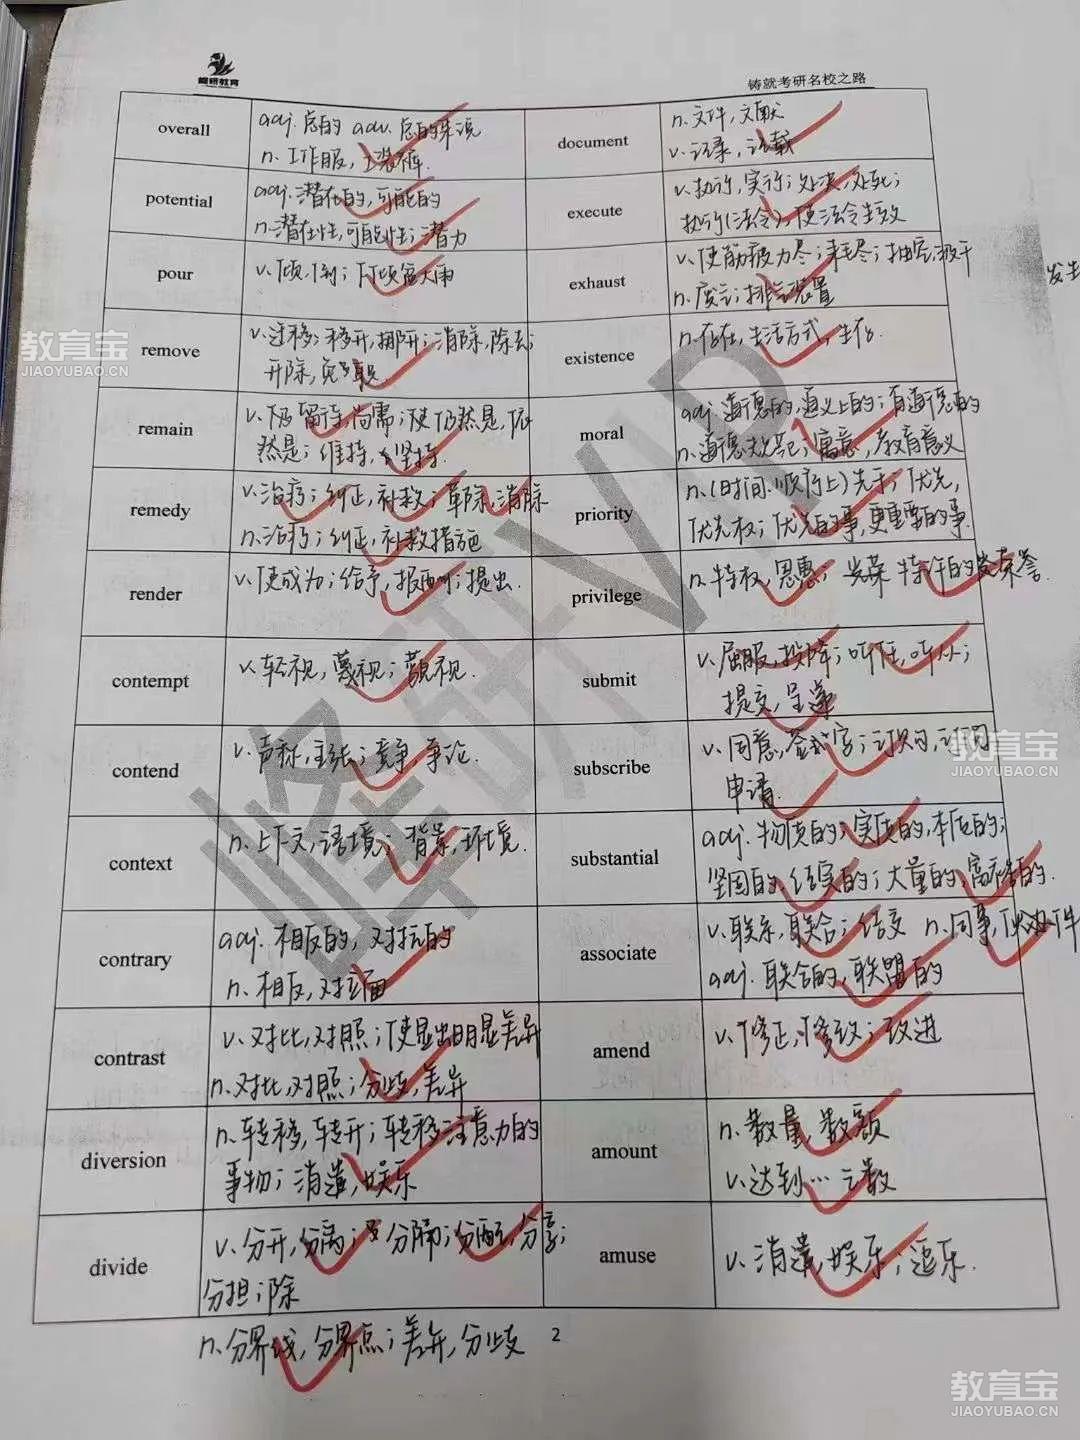 峰研教育
铸就考研名校之路
overall
adj.总的 adv.总的来说
n.工作服,工装裤.
document
n.文件,文献
v.记录,记载
potential
adj.潜在的,可能的
n.潜在性,可能性;潜力
execute
v.执行,实行;处决,处死;
执行(法令),使法令生效
pour
v.倾倒;下倾盆大雨
exhaust
v.使筋疲力尽;耗尽;抽空,汲干
n.废气;排气装置
发生
remove
v.迁移;移开,挪开;消除,除去;
开除,免职
existence
n.存在,生活方式,生存.
remain
v.仍留待,尚需;使仍然是,依
然是;维持,坚持.
moral
adj.道德的,道义上的;有道德的
n.道德规范;寓意,教育意义
remedy
v.治疗;纠正,补救;革除,消除
n.治疗;纠正,补救措施
priority
n.(时间、顺序上)先于;优先,
优先权;优先的事,更重要的事.
render
v.使成为;给予,报酬;提出.
privilege
n.特权,恩惠;荣 特许的荣誉.
contempt
v.轻视,蔑视;藐视.
submit
v.屈服,投降;听任,听从;
提交,呈递
contend
v.声称,主张;竞争,争论.
subscribe
v.同意,签字;订购,订阅
申请.
context
n.上下文,语境;背景,环境.
substantial
adj.物质的;实质的,本质的;
坚固的,结实的;大量的,富裕的.
contrary
adj.相反的,对抗的
n.相反,对立面
associate
v.联系,联合;结交 n.同事,伙伴
adj.联合的,联盟的
contrast
v.对比,对照;使显出明显差异
n.对比,对照;分歧,差异
amend
v.修正,修改;改进
diversion
n.转移,转开;转移注意力的
事物;消遣,娱乐
amount
n.数量,数额
v.达到…之数
divide
v.分开,分离;分隔;分配,分享;
分担;除
amuse
v.消遣,娱乐;逗乐.
n.分界线,分界点;差异,分歧
2
峰研VIP
教育宝
JIAOYUBAO.CN
教育宝
JIAOYUBAO.CN
教育宝
JIAOYUBAO.CN